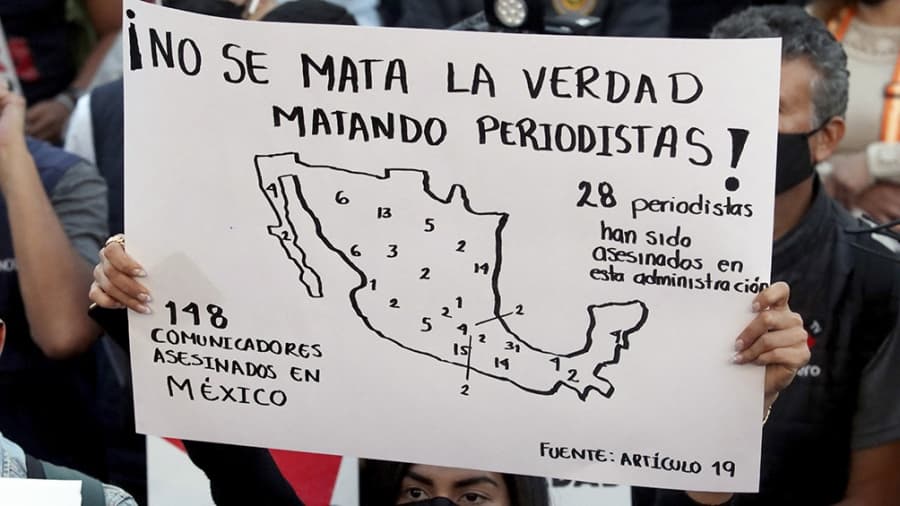 ¡NO SE MATA LA VERDAD
MATANDO PERIODISTAS!
28 periodistas
han sido
asesinados en
esta administración
4
6
13
5
2
2
6
3
2
14
1
2
1
2
5
4
2
2
31
15
14
2
4
2
1
148
COMUNICADORES
ASESINADOS EN
MÉXICO
FUENTE: ARTÍCULO 19